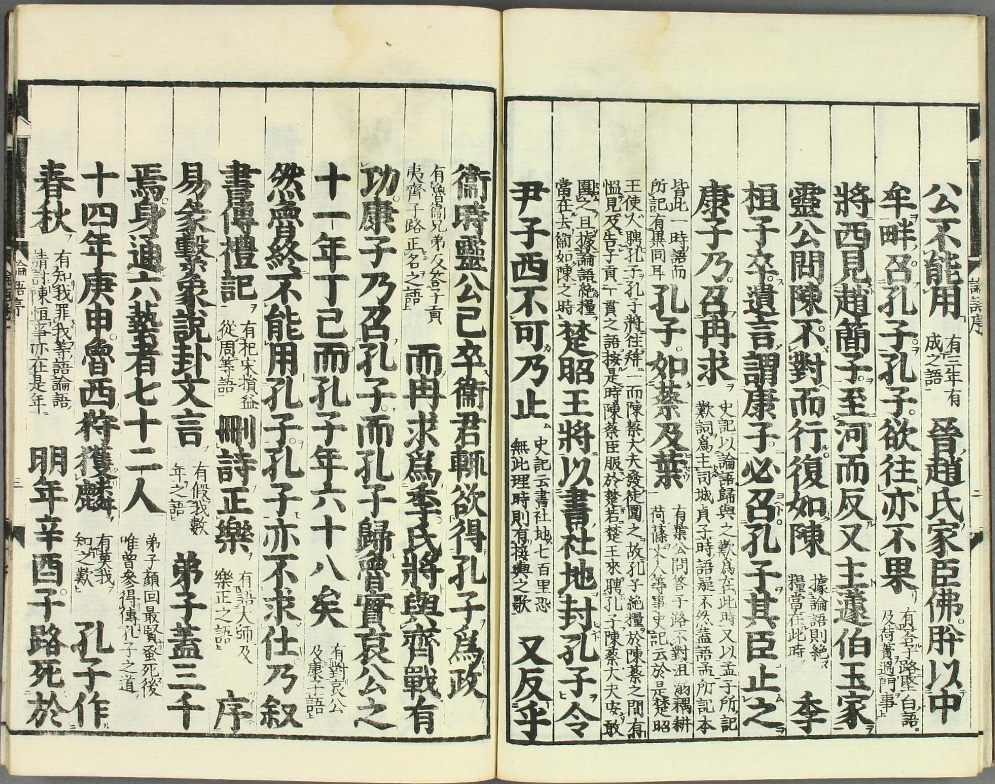 公不能用 有三年有成之語 晉趙氏家臣佛肸以中
牟畔召孔子孔子欲往亦不果 有荅子路堅白語及荷蕢過門事
將西見趙簡子至河而反又主蘧伯玉家
靈公問陳不對而行復如陳 據論語則絶糧當在此時 季
桓子卒遺言謂康子必召孔子其臣止之
康子乃召冉求 史記以論語歸與之歎爲在此時又以孟子所記歎詞爲主司城貞子時語疑不然蓋語孟所記本
皆此一時語而所記有異同耳 孔子如蔡及葉 有葉公問荅子路不對沮溺耦耕荷蓧丈人等事史記云於是楚昭
王使人聘孔子孔子將往拜禮而陳蔡大夫發徒圍之故孔子絶糧於陳蔡之間有慍見及告子貢一貫之語按是時陳蔡臣服於楚若楚王來聘孔子陳蔡大夫安敢
圍之且據論語絶糧當在去衞如陳之時 楚昭王將以書社地封孔子令
尹子西不可乃止 史記云書社地七百里恐無此理時則有接輿之歌 又反乎
衞時靈公已卒衞君輒欲得孔子爲政
有魯衞兄弟及荅子貢夷齊子路正名之語 而冉求爲季氏將與齊戰有
功康子乃召孔子而孔子歸魯實哀公之
十一年丁巳而孔子年六十八矣 有對哀公及康子語
然魯終不能用孔子孔子亦不求仕乃叙
書傳禮記 有杞宋損益從周等語 刪詩正樂 有語大師及樂正之語 序
易彖繫象說卦文言 有假我數年之語 弟子蓋三千
焉身通六藝者七十二人 弟子顔回最賢蚤死後唯曾參得傳孔子之道
十四年庚申魯西狩獲麟 有莫我知之歎 孔子作
春秋 有知我罪我等語論語請討陳恒事亦在是年 明年辛酉子路死於
論語序
二
論語序
三